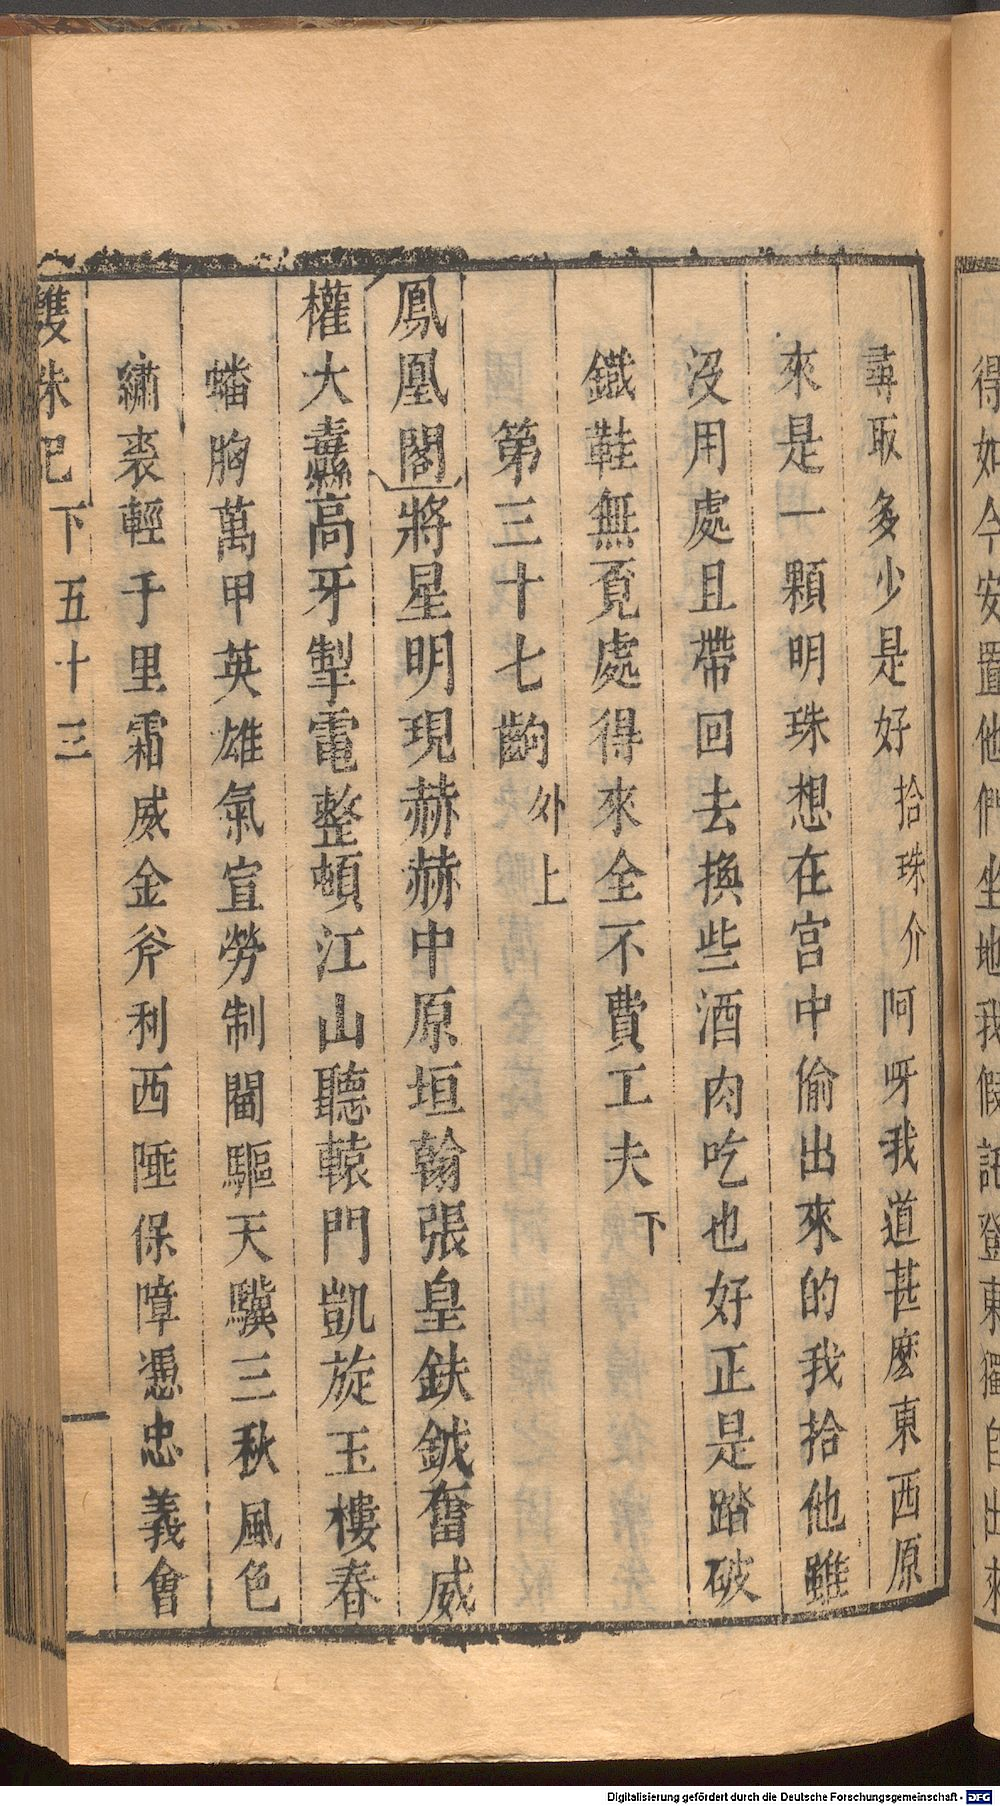 得如今安置他們坐地我假託登東獨自出來
尋取多少是好拾珠介阿呀我道甚麽東西原
來是一顆明珠想在宫中偷出來的我拾他雖
沒用處且帶回去換些酒肉吃也好正是踏破
鐵鞋無覔處得來全不費工夫下
第三十七齣外上
鳳凰閣將星明現赫赫中原垣翰張皇鈇鉞奮威
權大纛高牙掣電整頓江山聽轅門凱旋玉樓春
蟠胸萬甲英雄氣宣勞制閫驅天驥三秋風色
繡裘輕千里霜威金斧利西陲保障憑忠義會
雙珠記
下五十三
Digitalisierung gefördert durch die Deutsche Forschungsgemeinschaft - DFG